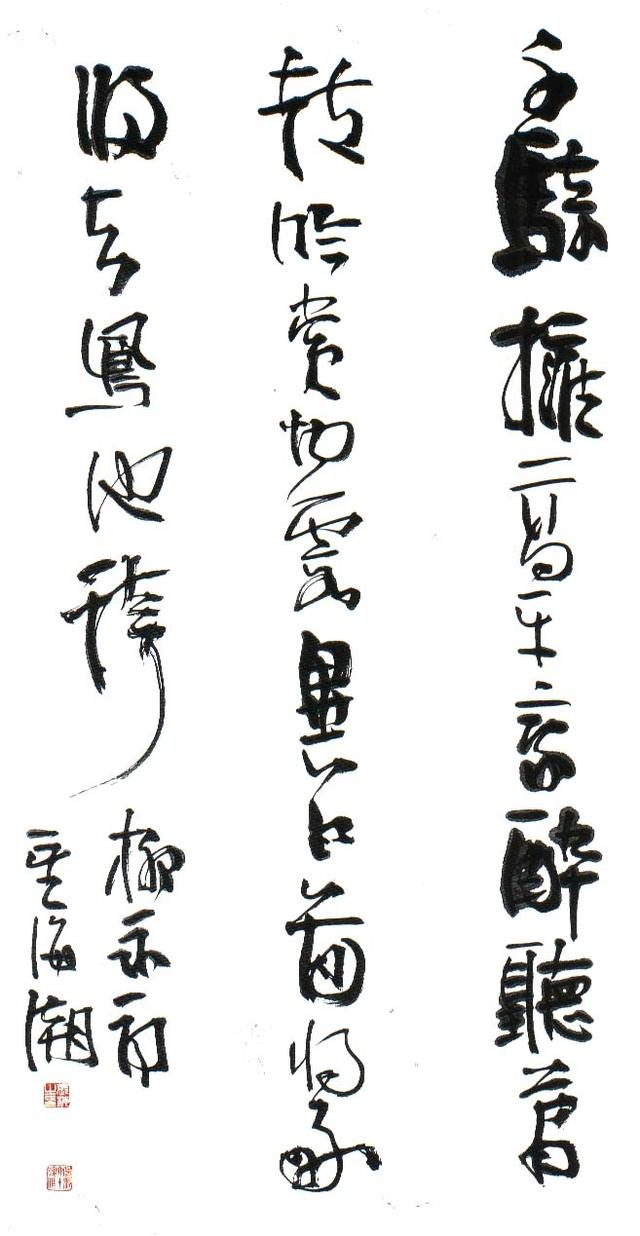 千騎擁高牙乘醉聽簫
鼓吟賞烟霞異日圖將好
歸去鳳池誇
柳永詞
望海潮